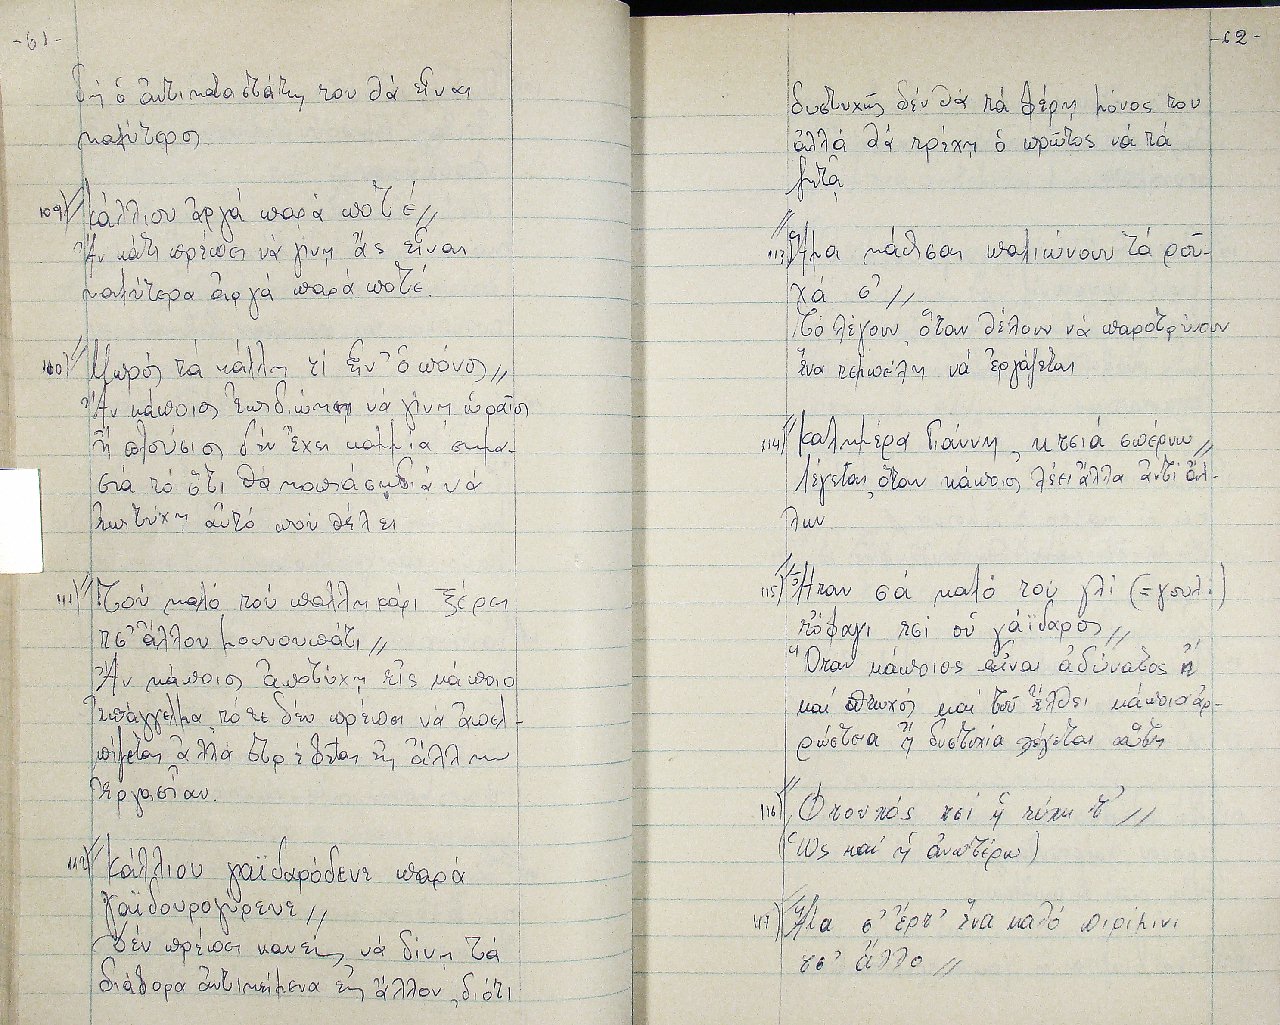 -61-
δή ὁ ἀντικαταστάτης του θά εἶναι
καλύτερος
109) "Κάλλιου ἀργά παρά ποτέ"
Ἄν κάτι πρέπει νά γίνη ἄς εἶναι
καλύτερα ἀργά παρά ποτέ.
110) "Μωρός τά κάλλη τί εἶν' ὁ πόνος"
Ἄν κάποιος ἐπιδιώκει νά γίνη ὡραῖος
ἤ πλούσιος δέν ἔχει καμμία σημα-
σία τό ὅτι θά κοπιάση διά νά
ἐπιτύχη αὐτό πού θέλει
111) "Τού καλό τού παλληκάρι ξέρει
τσ' ἄλλου μουνουπάτι"
Ἄν κάποιος ἀποτύχη εἰς κάποιο
ἐπάγγελμα τότε δέν πρέπει νά ἀπελ-
πίζεται ἀλλά στρέφεται εἰς ἄλλην
ἐργασίαν.
112) "Κάλλιου γαϊδαρόδενε παρά
γαϊδουρογύρευε"
Δέν πρέπει κανείς νά δίνη τά
διάφορα ἀντικείμενα εἰς ἄλλον διότι
-62-
δυστυχῶς δέν θά τά φέρη μόνος του
ἀλλά θά τρέχη ὁ πρῶτος νά τά
ζητᾶ
113) "Ἅμα κάθεσαι παλιώνουν τά ροῦ-
χά σ'"
Τό λέγουν ὅταν θέλουν νά παροτρύνουν
ἕνα τεμπέλη νά ἐργάζεται
114) "Καλημέρα Γιάννη, κτσιά σπέρνω"
Λέγεται ὅταν κάποιος λέει ἄλλα ἀντί ἄλ-
λων
115) "Ἦταν σά καλό τού γλί (=γουλ.)
τόφαγι τσί οὑ γάϊδαρος"
Ὅταν κάποιος εἶναι ἀδύνατος ἤ
καί πτωχός καί τοῦ ἔλθει κάποια ἀρ-
ρώστεια ἤ δυστυχία λέγεται αὐτή
116) "Φτουχός τσί ἡ τύχη τ'"
(Ὡς καί ἡ ἀνωτέρω)
117) "Ἅμα σ' ἔρτ' ἕνα καλό πιρίμινι
τσ' ἄλλο"